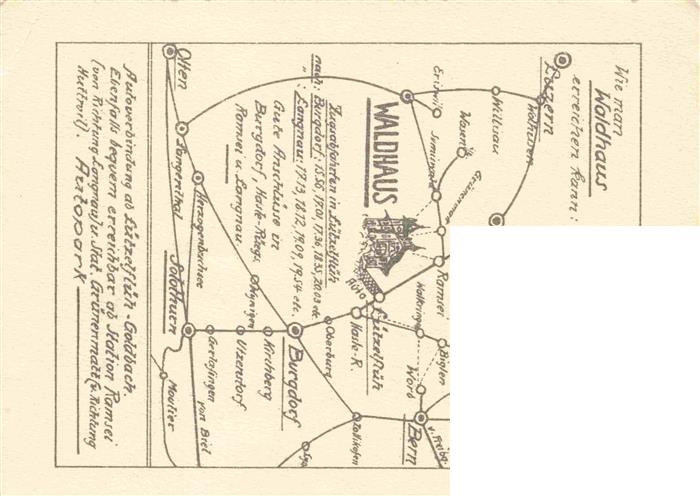 Wie man
Waldhaus
erreichen kann:
Luzern
Wolhusen
Willisau
Eriswil
Wasen i/E
Sumiswald
Grünenmatt
WALDHAUS
Ramsei
AUTO
Lützelflüh
Hasle-R.
Walkringen
Biglen
Worb
Bern
v. Freibg.
Zollikofen
Oberburg
Burgdorf
Wynigen
Kirchberg
Utzenstorf
Gerlafingen
von Biel
Solothurn
Moutier
Herzogenbuchsee
Langenthal
Olten
Zugsabfahrten in Lützelflüh
nach: Burgdorf: 15.56, 17.01, 17.36, 18.35, 20.03 etc.
" : Langnau: 17.13, 18.12, 19.09, 19.54 etc.
Gute Anschlüsse in
Burgdorf, Hasle-Rüegs.
Ramsei u. Langnau
Autoverbindung ab Lützelflüh-Goldbach
Ebenfalls bequem erreichbar ab Station Ramsei
(von Richtung Langnau) u. Stat. Grünenmatt (v. Richtung
Huttwil). Autopark